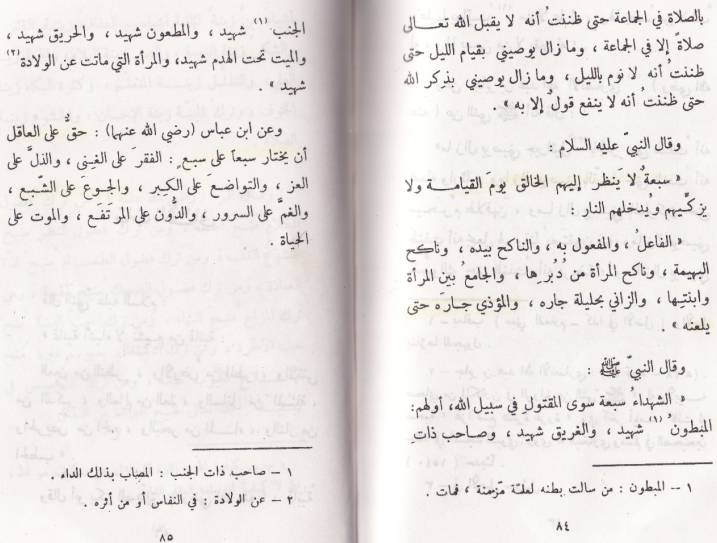 بالصلاة في الجماعة حتى ظننتُ أنه لا يقبل الله تعالى
صلاةً إلا في الجماعة ، وما زال يوصيني بقيام الليل حتى
ظننتُ أنه لا نوم بالليل ، وما زال يوصيني بذكر الله
حتى ظننتُ أنه لا ينفع قول إلا به » .
وقال النبيّ عليه السلام :
« سبعةُ لا يَنظر إليهم الخالق يومَ القيامة ولا
يزكّيهم ويُدخلهم النار :
« الفاعلُ ، والمفعول بِه ، والناكح بيده ، وناكح
البهيمة ، وناكح المرأة من دُبُرِها ، والجامعُ بين المرأة
وابنتها ، والزاني بحليلة جاره ، والمؤذي جارَه حتى
يلعنه » .
وقال النبيّ ﷺ :
« الشهداءُ سبعة سوى المقتول في سبيل الله، أولهم:
المبطونُ (١) شهيد ، والغريق شهيد ، وصاحب ذات
١ – المبطون : من سالت بطنه لعلّة مزمنة ، فمات .
٨٤
الجنب (١) شهيد ، والمطعون شهيد ، والحريق شهيد ،
والميت تحت الهدم شهيد، والمرأة التي ماتت عن الولادة (٢)
شهيد » .
وعن ابن عباس (رضي الله عنهما) : حقٌّ على العاقل
أن يختار سبعاً على سبعٍ : الفقرَ على الغِنى ، والذلَّ على
العز ، والتواضعَ على الكِبر ، والجوع على الشّبع ،
والغمَّ على السرور ، والدُّون على المرتفَع ، والموت على
الحياة .
١ – صاحب ذات الجنب : المصاب بذلك الداء .
٢ – عن الولادة : في النفاس أو من أثره .
٨٥